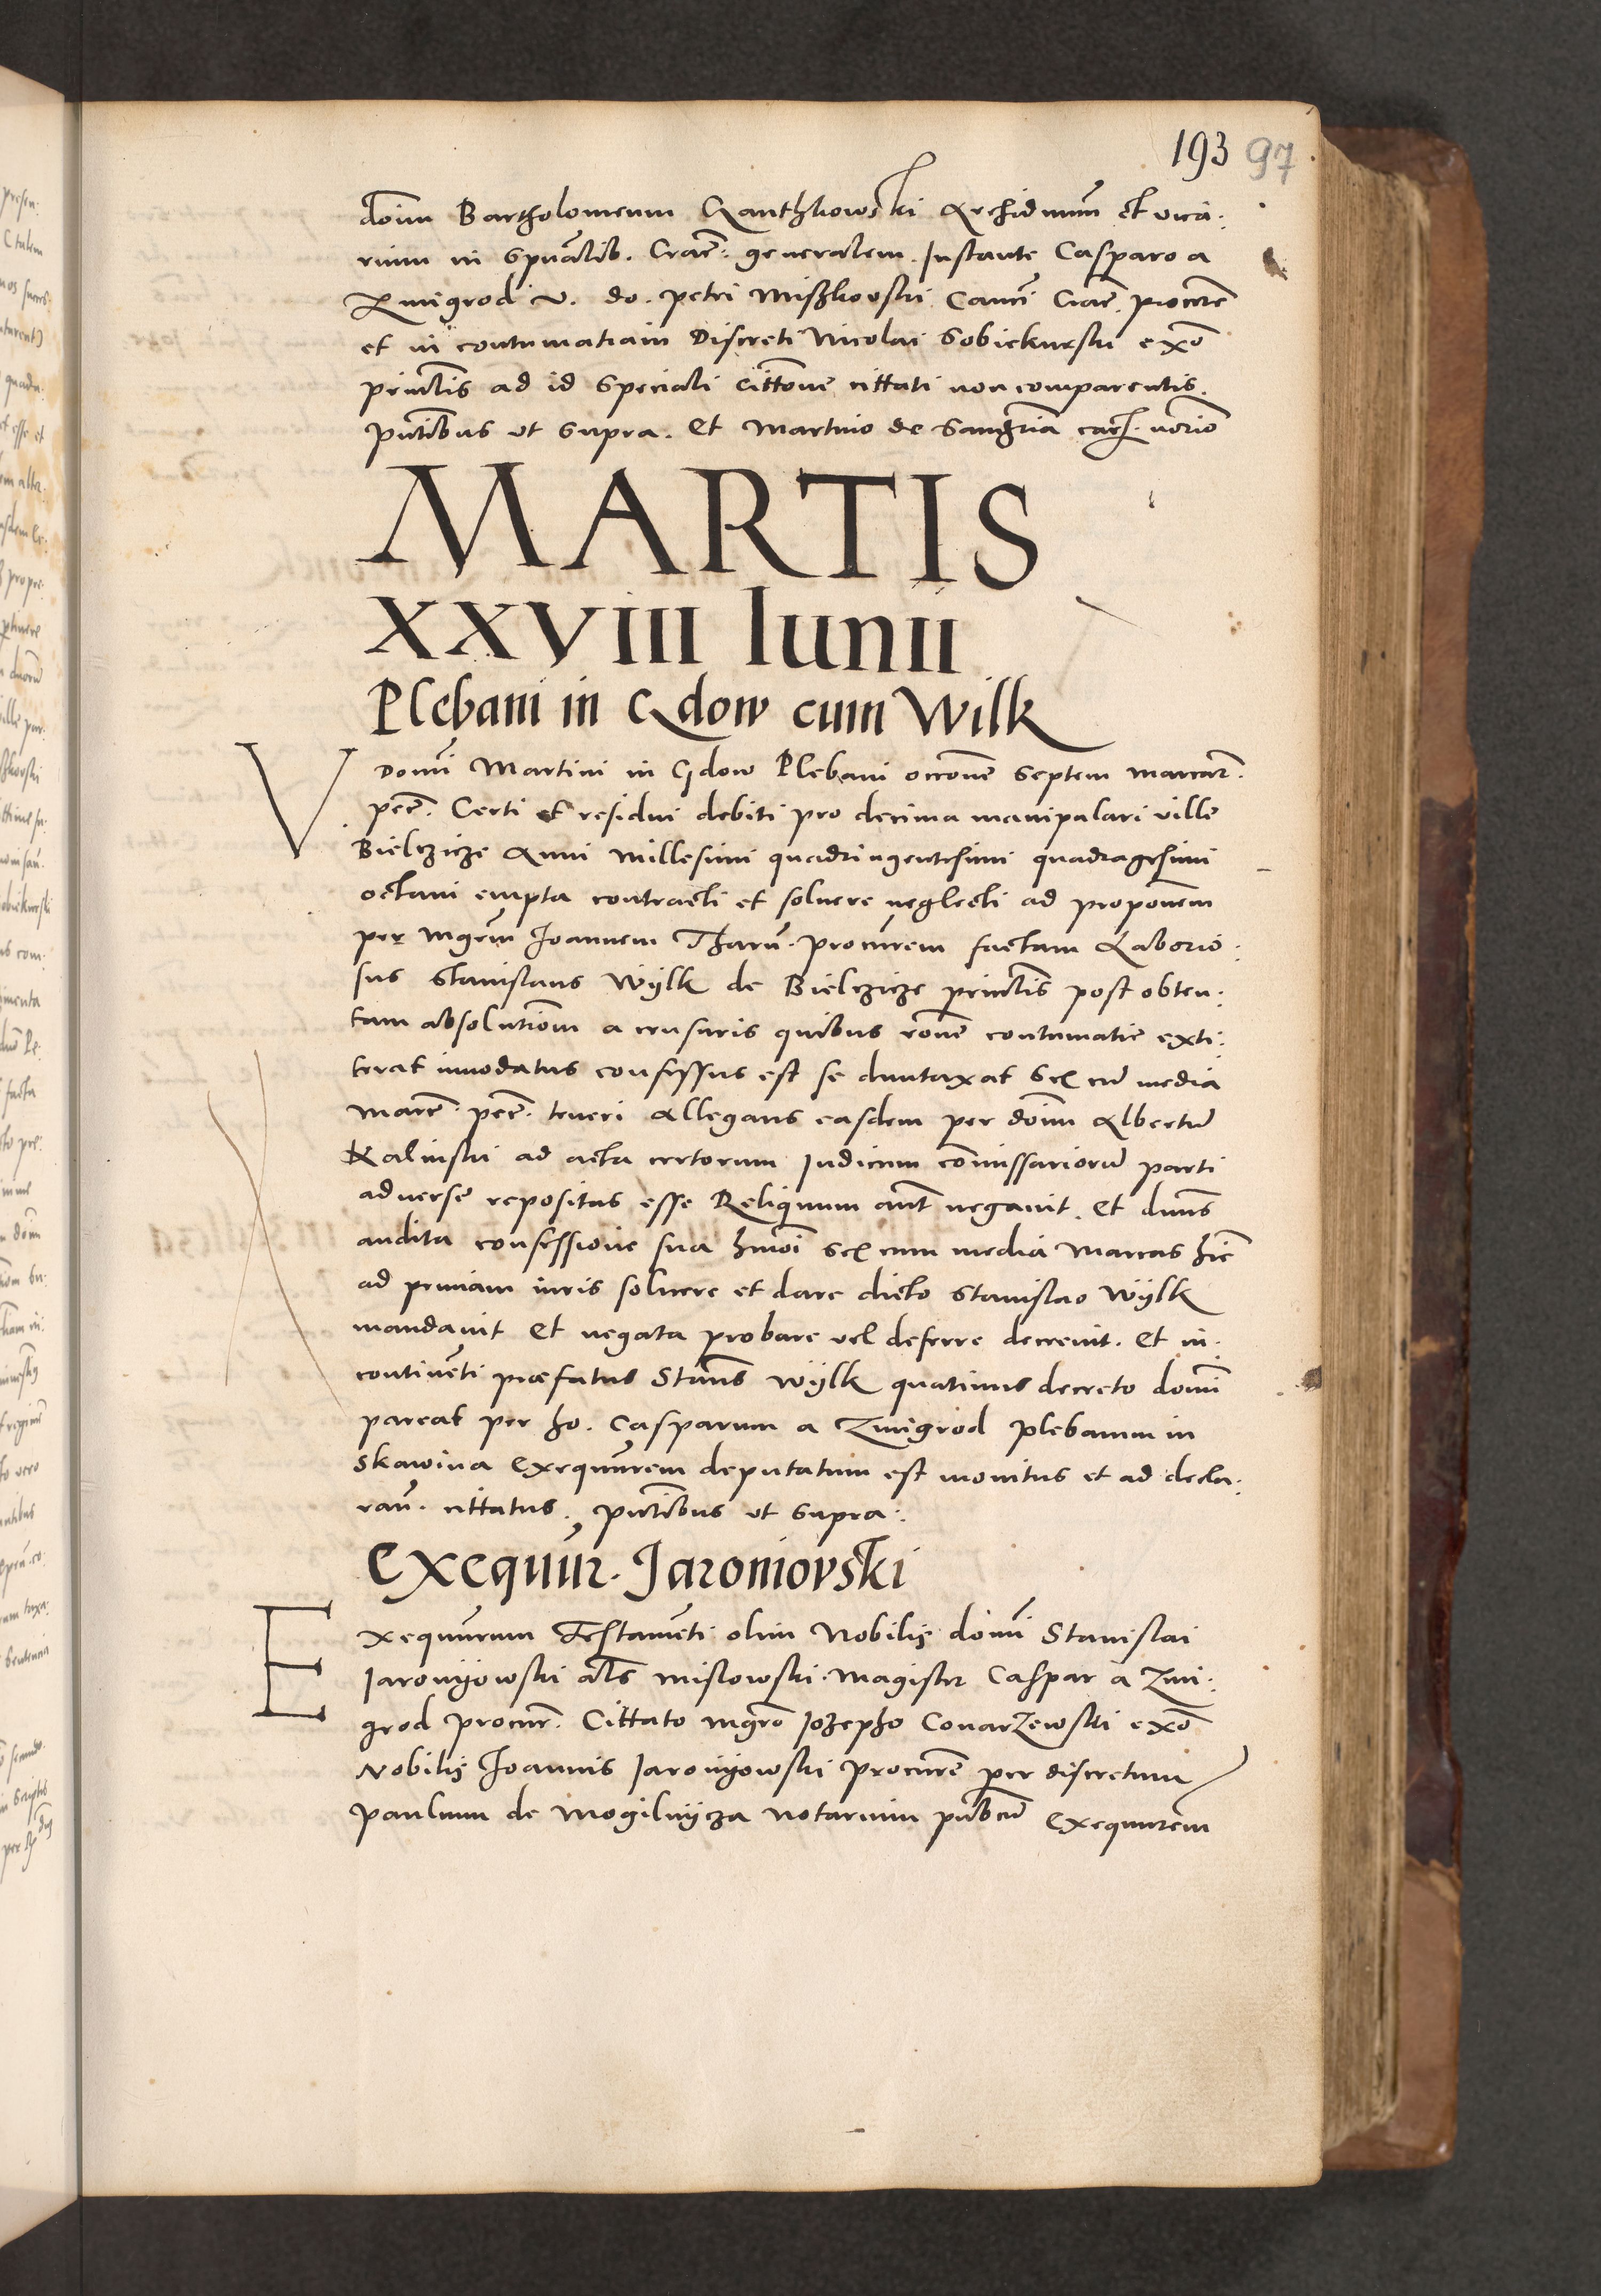 193 97
doim Bartholomeum Ganthkowski Archidnum et vica:
rium in Spualib. Crac: generalem. Instante Casparo a
Zmigrod v. do. Petri Miszkovski Canci Crac. procrem
et in contumatiam Discreti Nicolai Sobiekurski exo
principlis ad id speciali cittone cittati non comparentis.
pntibus ut supra. Et Martino de norio
MARTIS
XXVIII Iunii
Plebani in Gdow cum Wilk
V domi Martini in Gdow Plebani occone septem marcar.
pece. Certi et residui debiti pro decima manipulari ville
Bielczicze Anni millesimi quadringentesimi quadragesimi
octavi empta contracti et soluere neglecti ad proponem
per mgrm Joannem Tharn. procurem factam Laborio:
sus Stanislaus Wylk de Bielczicze princtis post obten:
tam absolutiom a censuris quibus rone contumatie exti:
terat innodatus confessus est se duntaxat sex cu media
marc. pec. teneri Allegans easdem per doim Albertu
Kalinski ad acta certorum Iudicum comissarioru parti
adverse repositas esse Reliquum aut negavit. Et dnus
audita confessione sua hmoi sex cum media Marcas hic
ad primam iuris soluere et dare dicto Stanislao Wylk
mandauit Et negata probare vel deferre decreuit. Et in:
continenti præfatus Stans Wylk quatinus decreto domi
pareat per ho. Casparum a Zmigrod Plebanum in
Skawina Exequurem deputatum est monitus et ad decla:
ran. cittatus. pntibus ut supra.
Exequur. Jaroniovski
Exequurum Testamenti olim Nobilis domi Stanislai
Jaronyowski als Mislowski. Magister Caspar a Zmi:
grod procur. Cittato mgro Iozepho Conarzewski exo
Nobilis Joannis Jaronyowski procurem per discretum
Paulum de Mogilnycza notarium pubcu Exequurem